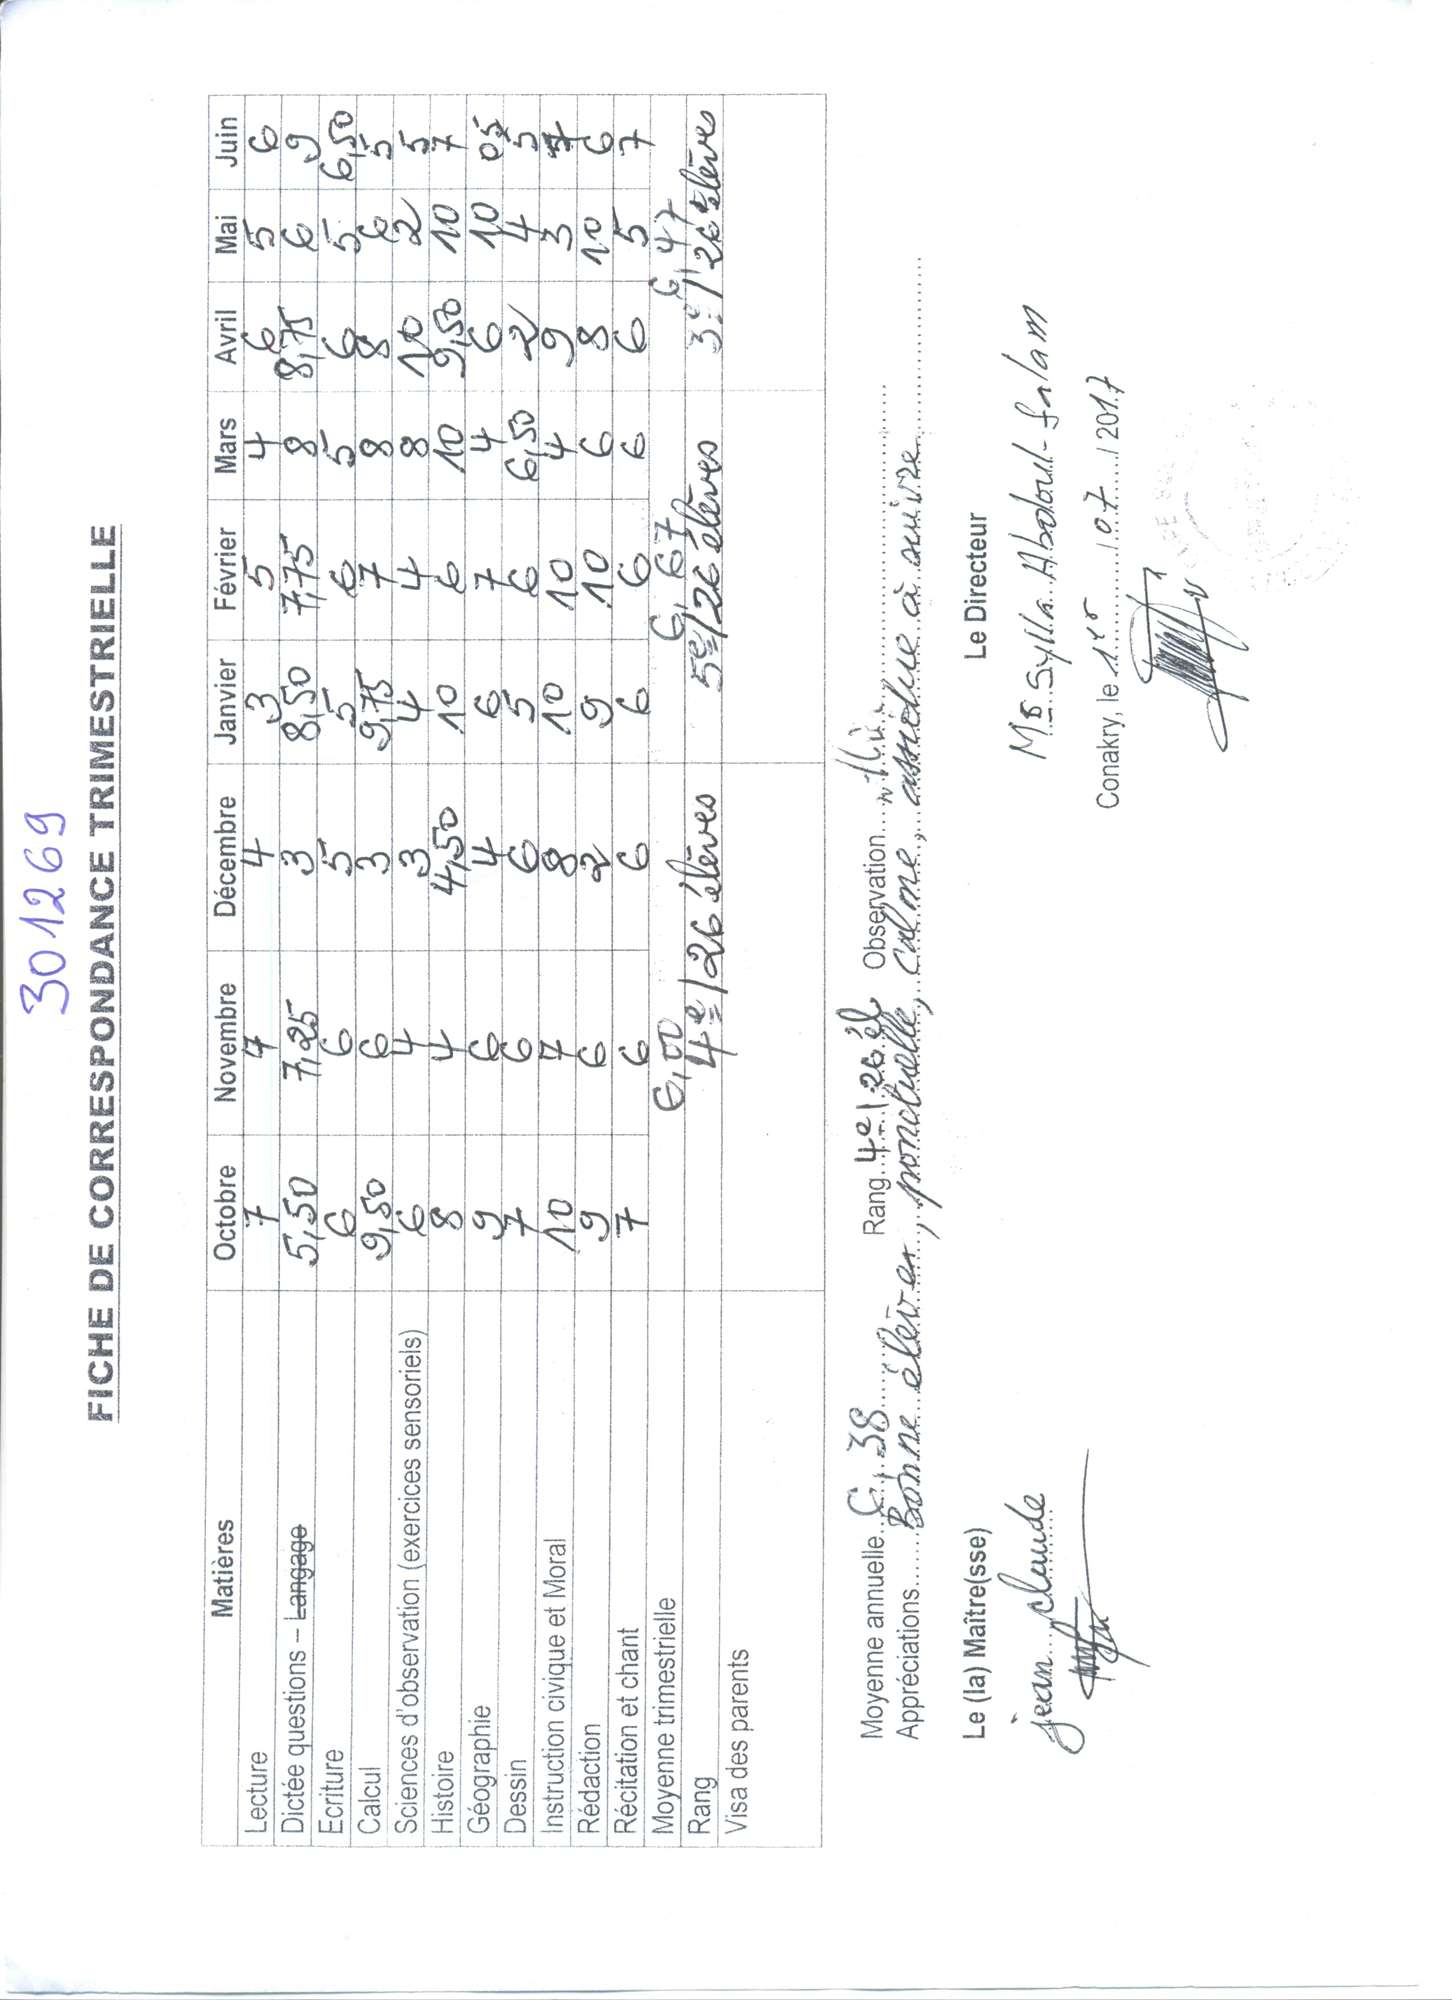 301269
FICHE DE CORRESPONDANCE TRIMESTRIELLE
Matières Octobre Novembre Décembre Janvier Février Mars Avril Mai Juin
Lecture 7 7 4 3 5 4 6 5 6
Dictée questions – Langage 5,50 7,25 3 8,50 7,75 8 8,75 6 9
Ecriture 6 6 5 5 6 5 6 5 6,50
Calcul 9,50 6 3 9,75 7 8 8 6 5
Sciences d'observation (exercices sensoriels) 6 4 3 4 4 8 10 2 5
Histoire 8 4 4,50 10 6 10 9,50 10 7
Géographie 9 6 4 6 7 4 6 10 05
Dessin 7 6 6 5 6 6,50 2 4 5
Instruction civique et Moral 10 7 8 10 10 4 9 3
Rédaction 9 6 2 9 10 6 8 10 6
Récitation et chant 7 6 6 6 6 6 6 5 7
Moyenne trimestrielle 6,00 6,67 6,47
Rang 4e/26 élèves 5e/26 élèves 3e/26 élèves
Visa des parents
Moyenne annuelle 6,38 Rang 4e/26 él Observation
Appréciations Bonne élève, ponctuelle, calme, assidue à suivre
Le (la) Maître(sse) Le Directeur
jean claude Sylla Abdoul
Conakry, le 1er/07/2017